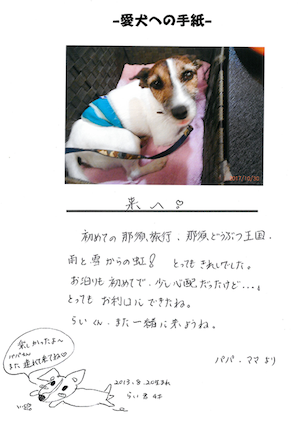 -愛犬への手紙-
2017/10/30
来へ♡
初めての那須旅行、那須どうぶつ王国、
雨と雪からの虹！とってもきれいでした。
お泊りも初めてで、少し心配だったけど…。
とってもお利口にできたね。
らいくん、また一緒に来ようね。
パパ・ママより
楽しかったよ〜
パパママ
また連れて来てね♡
2013.8.20生まれ
らい 4才